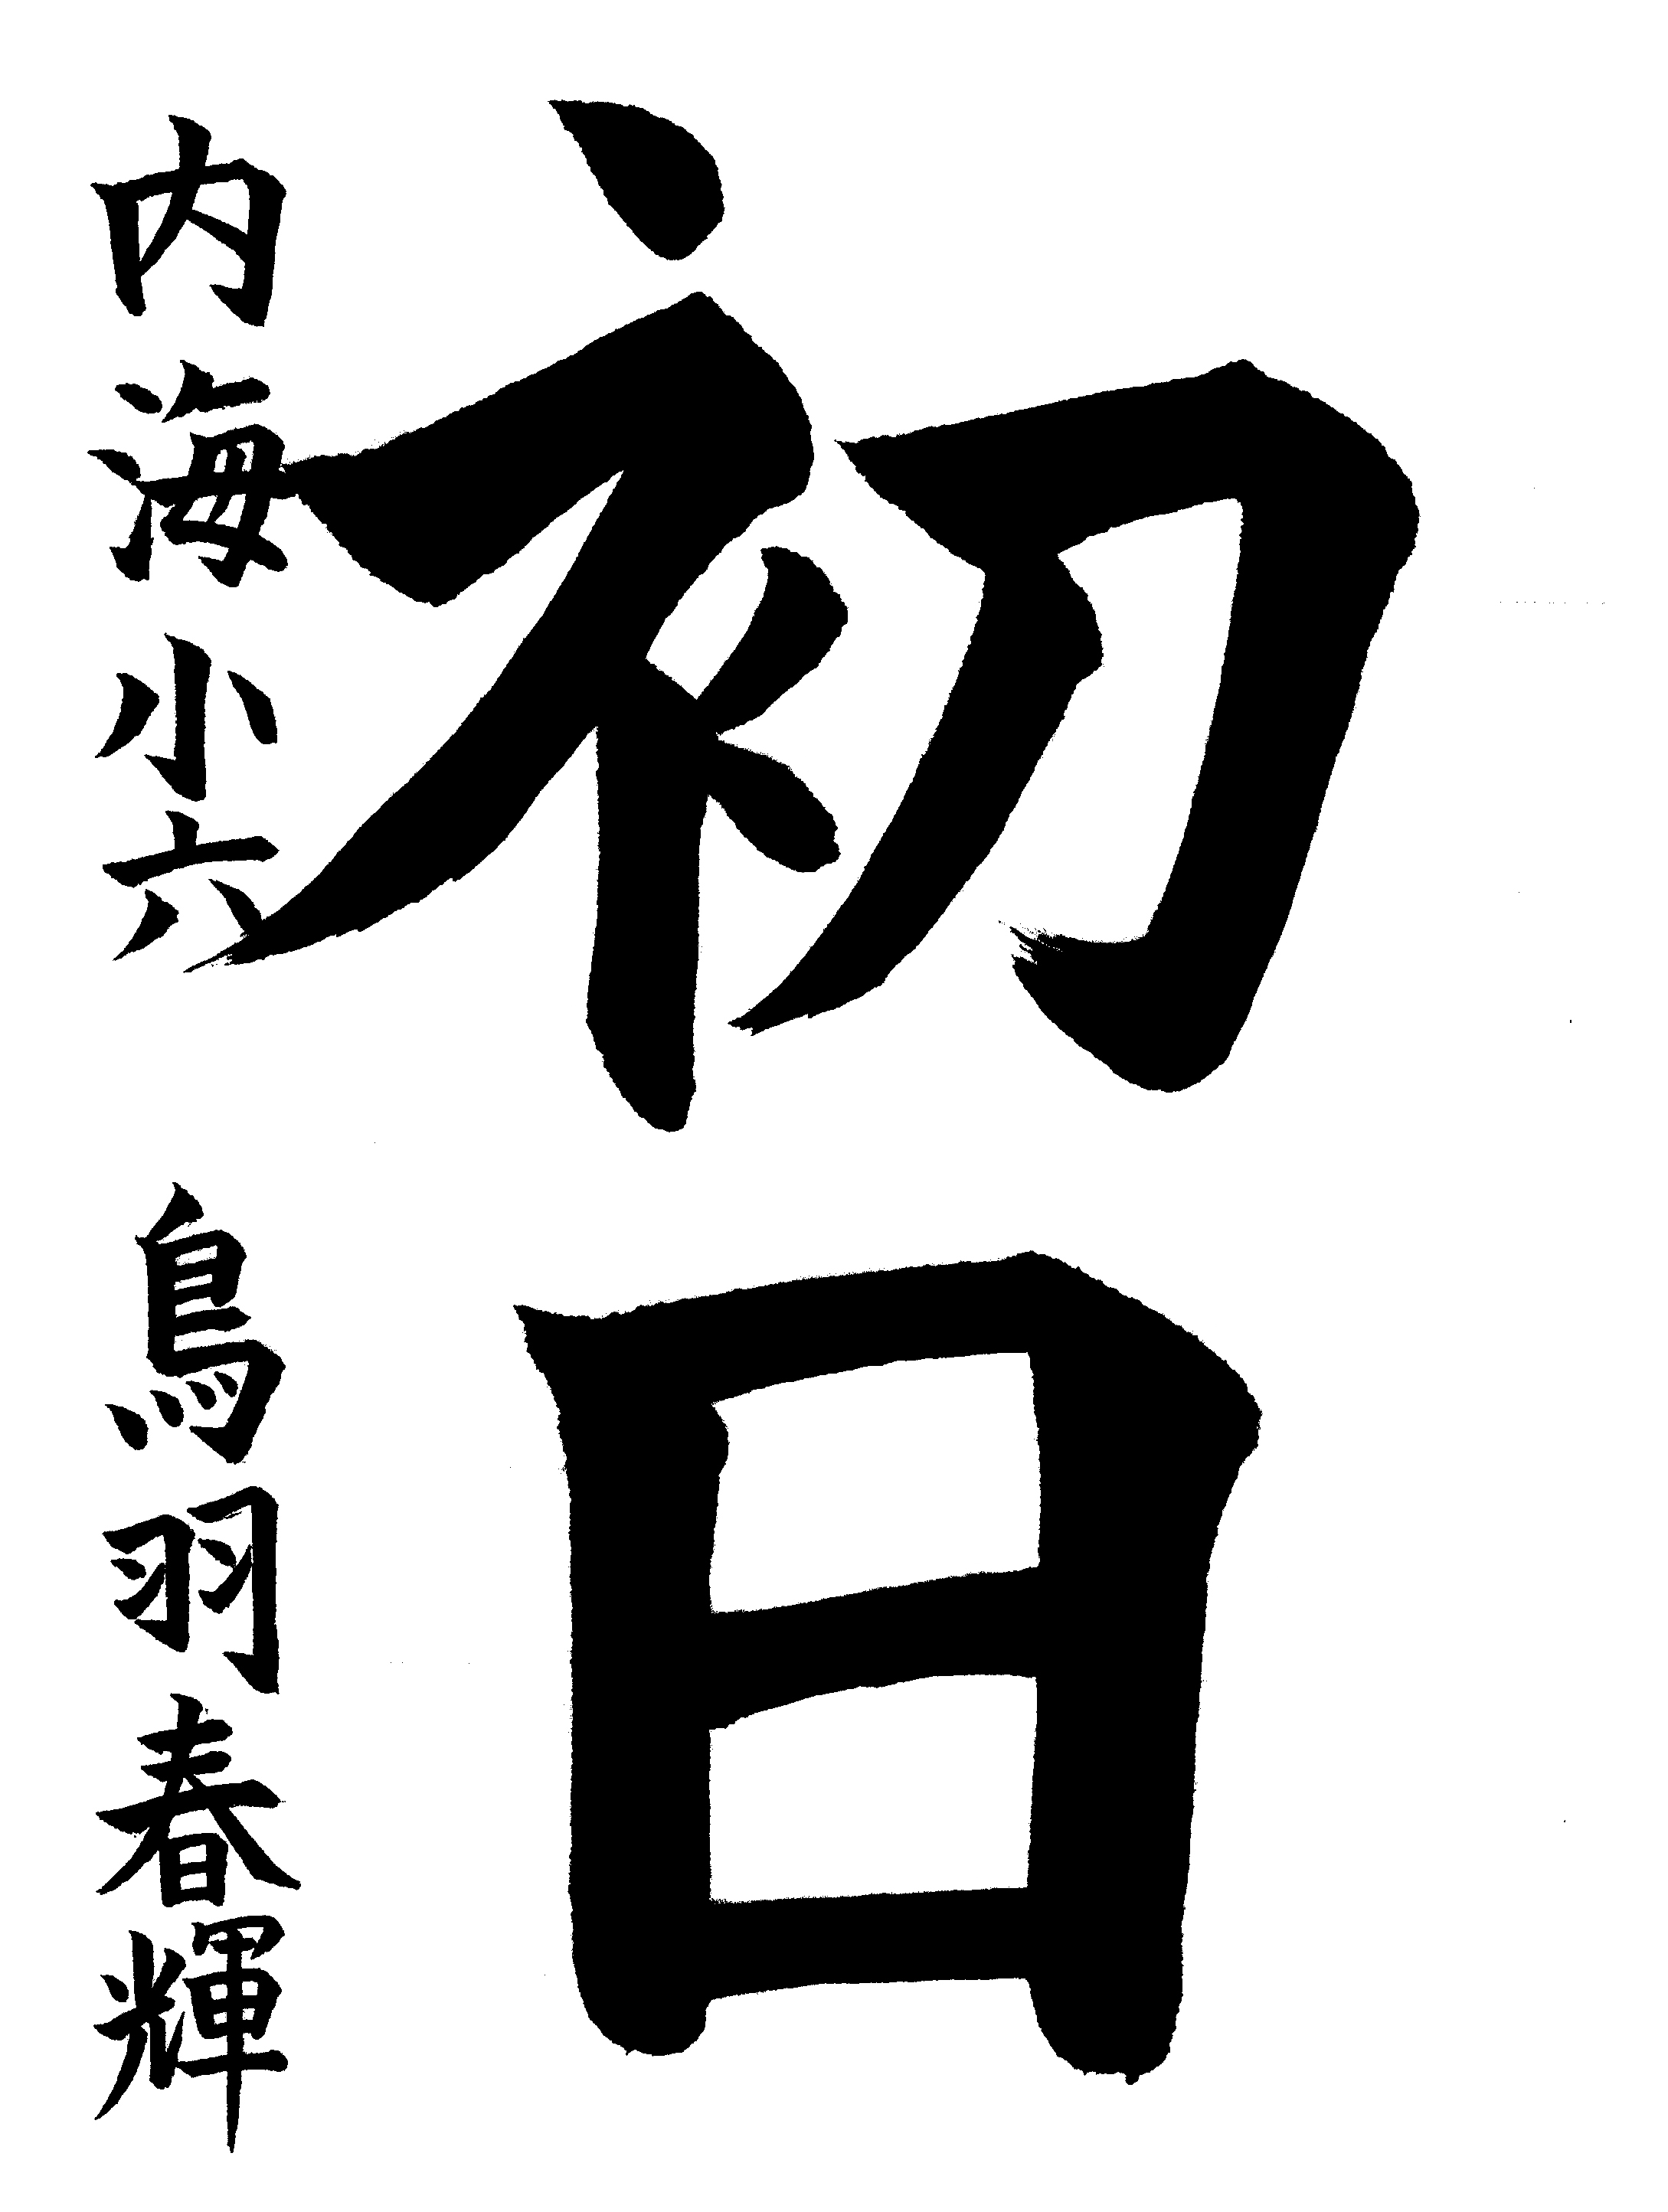 初日
内海小六 鳥羽春輝